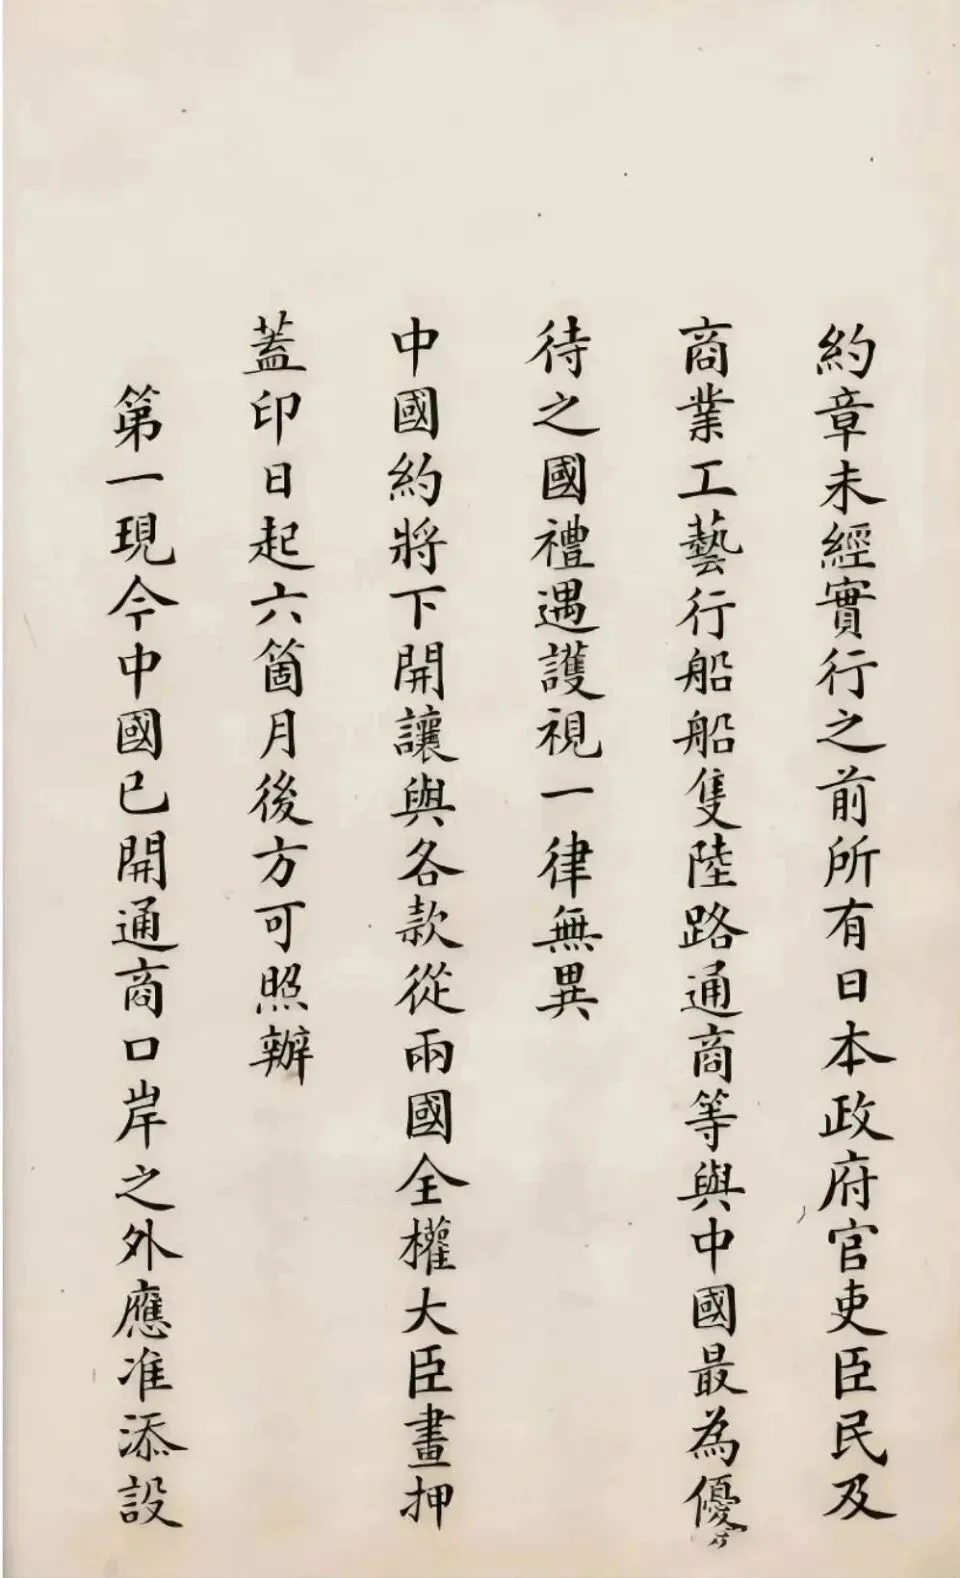 約章未經實行之前所有日本政府官吏臣民及
商業工藝行船船隻陸路通商等與中國最為優
待之國禮遇護視一律無異
中國約將下開讓與各款從兩國全權大臣畫押
蓋印日起六箇月後方可照辦
第一現今中國已開通商口岸之外應准添設